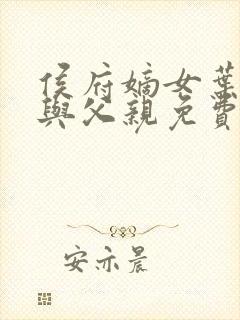 侯府嫡女葉
與父親免費
安亦晨